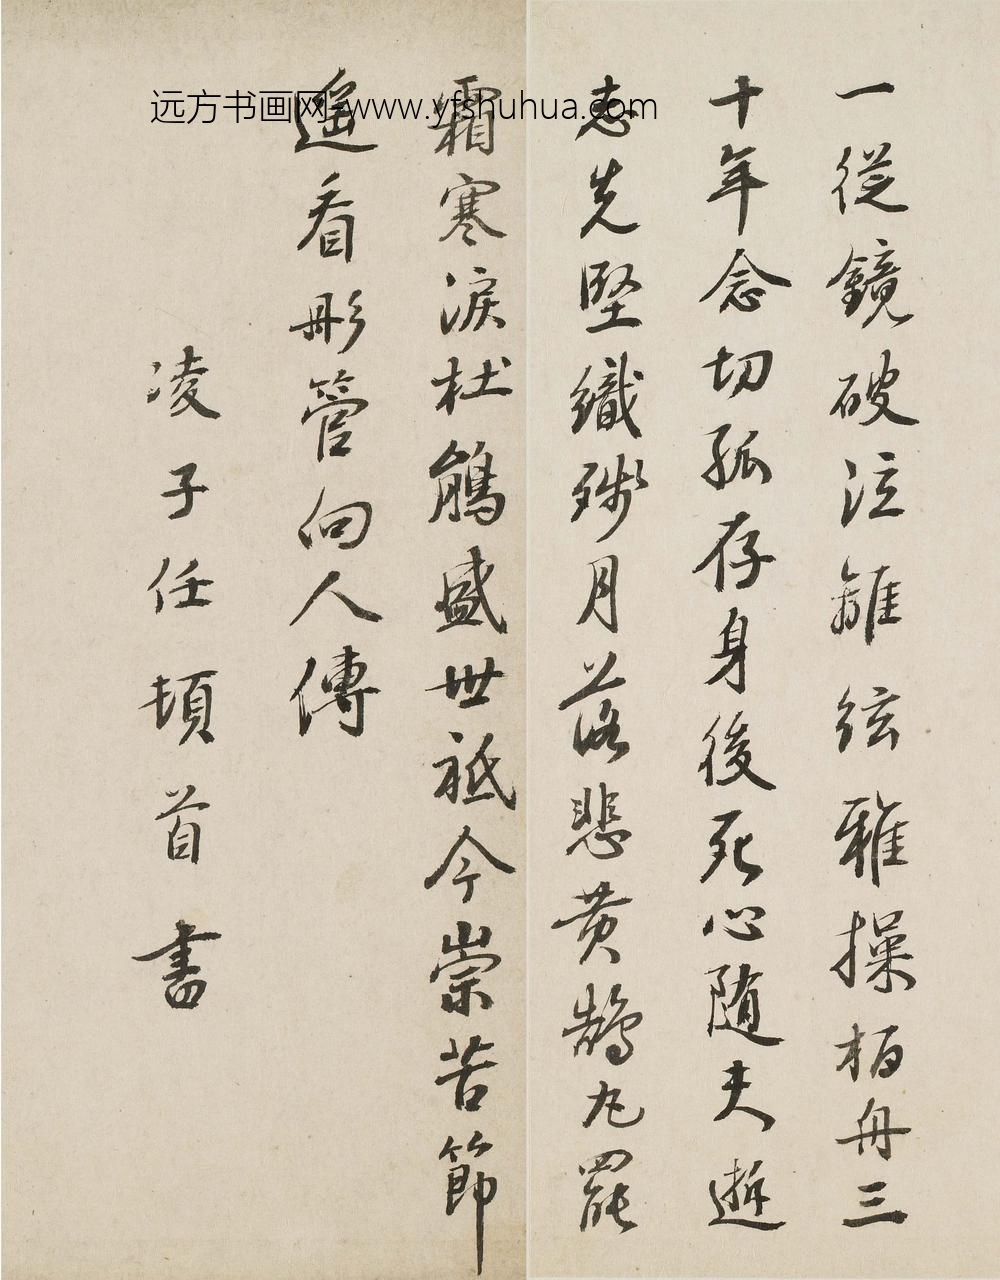 远方书画网 www.yfshuhua.com
一從鏡破泣離絃雅操柏舟三
十年念切孤存身後死心隨夫逝
志先堅織殘月落悲黄鵠丸罷
霜寒淚杜鵑盛世祗今崇苦節
遥看彤管向人傳
凌子任頓首書